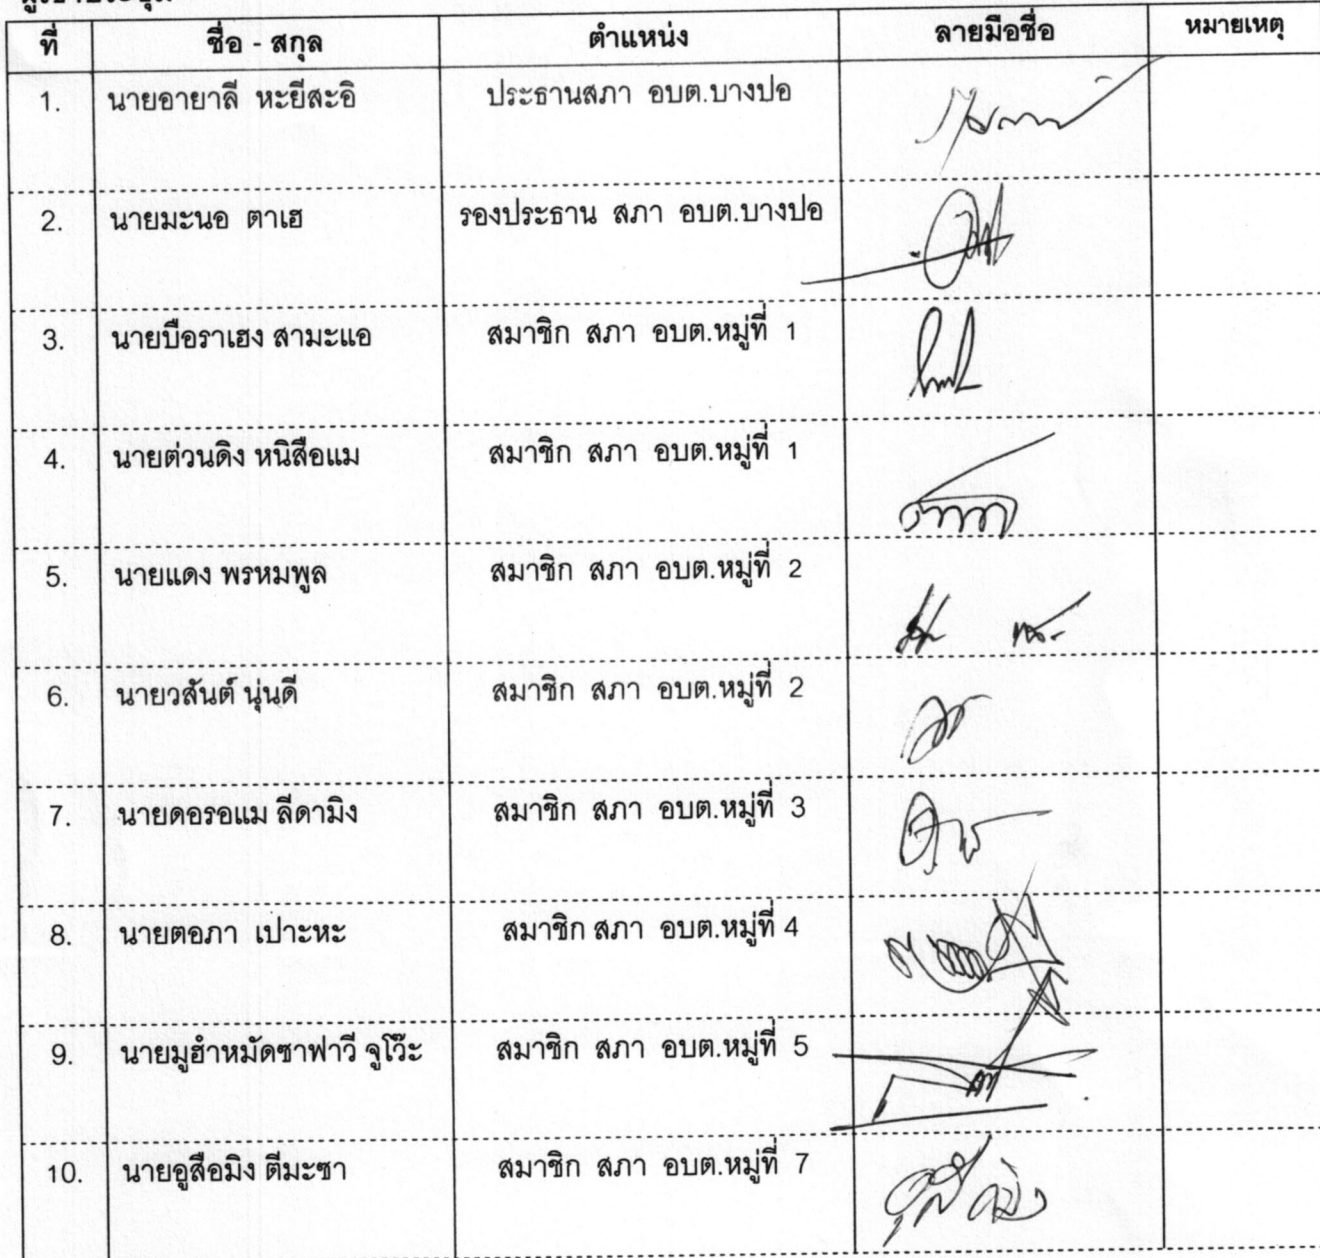 ผู้เข้าประชุม
ที่ ชื่อ - สกุล ตำแหน่ง ลายมือชื่อ หมายเหตุ
1. นายอายาลี หะยีสะอิ ประธานสภา อบต.บางปอ
2. นายมะนอ ตาเฮ รองประธาน สภา อบต.บางปอ
3. นายบือราเฮง สามะแอ สมาชิก สภา อบต.หมู่ที่ 1
4. นายต่วนดิง หนิสือแม สมาชิก สภา อบต.หมู่ที่ 1
5. นายแดง พรหมพูล สมาชิก สภา อบต.หมู่ที่ 2
6. นายวสันต์ นุ่นดี สมาชิก สภา อบต.หมู่ที่ 2
7. นายดอรอแม ลีดามิง สมาชิก สภา อบต.หมู่ที่ 3
8. นายตอภา เปาะหะ สมาชิก สภา อบต.หมู่ที่ 4
9. นายมูฮำหมัดซาฟาวี จูโว๊ะ สมาชิก สภา อบต.หมู่ที่ 5
10. นายอูสือมิง ตีมะซา สมาชิก สภา อบต.หมู่ที่ 7